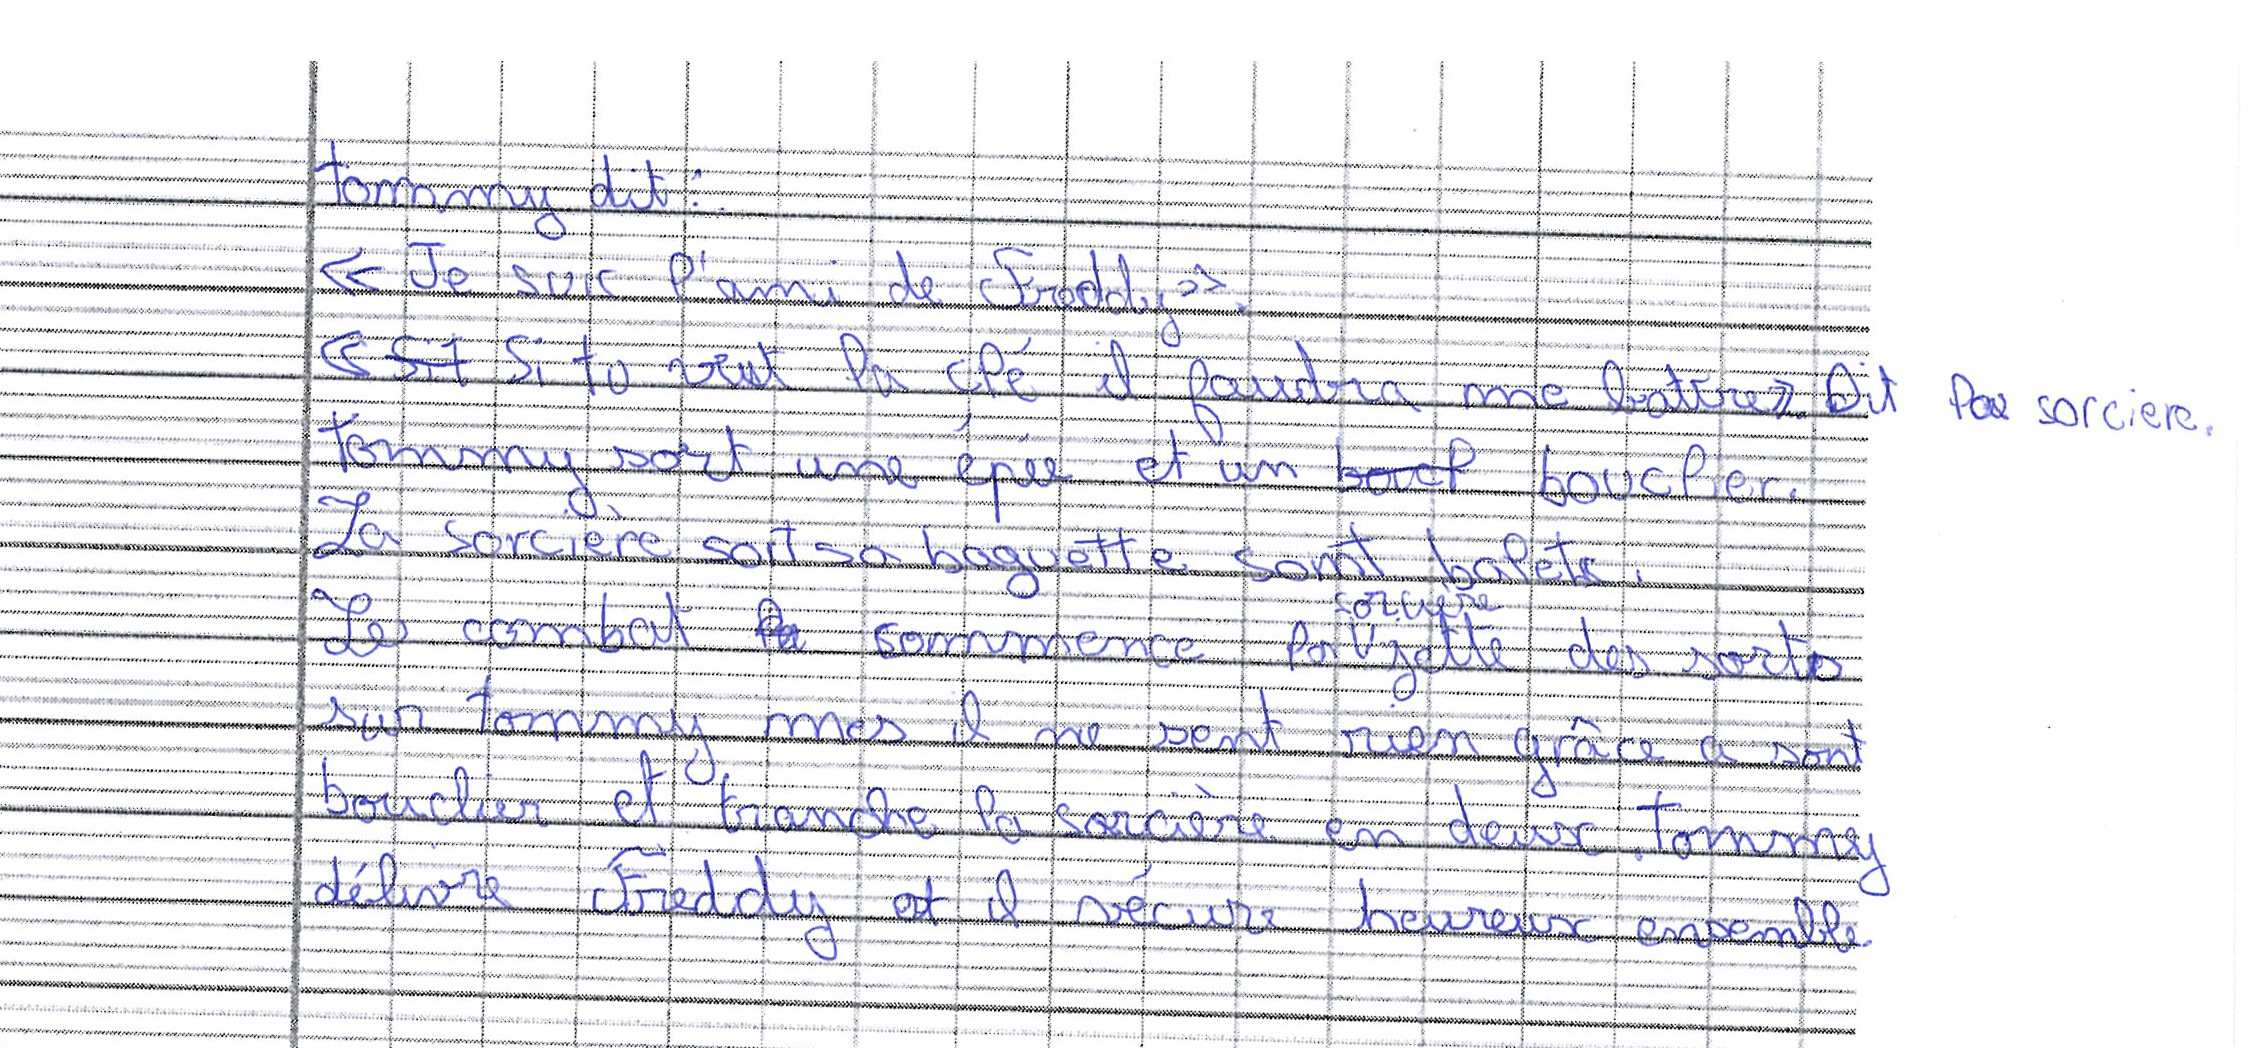 tommy dit :
« Je suis l'ami de Freddy ».
« Si tu veut la clé il faudra me batire ». Dit la sorciere.
tommy sort une épée et un bouclier.
La sorcière sort sa baguette sont balets.
Les combat sommence la sorcière jette des sorts
sur tommy mes il ne sent rien grâce a sont
bouclier et tranche la sorcière en deux. tommy
délivre Freddy et il vécure heureux ensemble